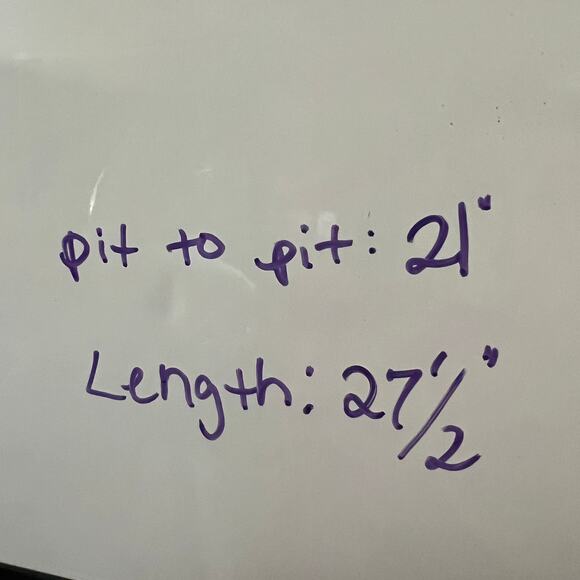 pit to pit: 21"
Length: 27 1/2"